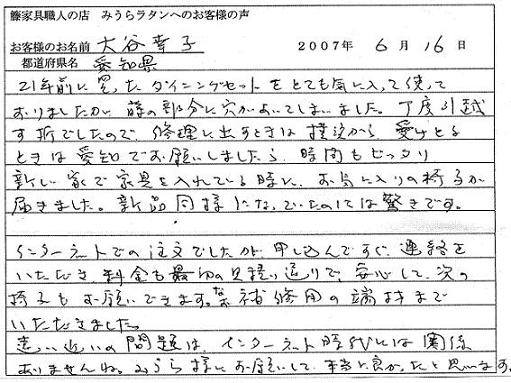 籐家具職人の店 みうらラタンへのお客様の声
お客様のお名前 大谷幸子 2007年 6月 16日
都道府県名 愛知県
21年前に買ったダイニングセットをとても気に入って使って
おりましたが 籐の部分に穴があいてしまいました。丁度引越
す所でしたので、修理に出すときは横浜から 受けとる
ときは愛知でお願いしましたら 時間もピッタリ
新しい家で家具を入れている時に、お気に入りの椅子が
届きました。新品同様になっていたのには驚きです。
インターネットでの注文でしたが、申し込んですぐ、連絡を
いただき 料金も最初の見積り通りで、安心して、次の
椅子もお願いできます。なお補修用の端材まで
いただきました。
遠い近いの問題は、インターネット時代には関係
ありませんね。みうら様にお願いして、本当に良かったと思います。